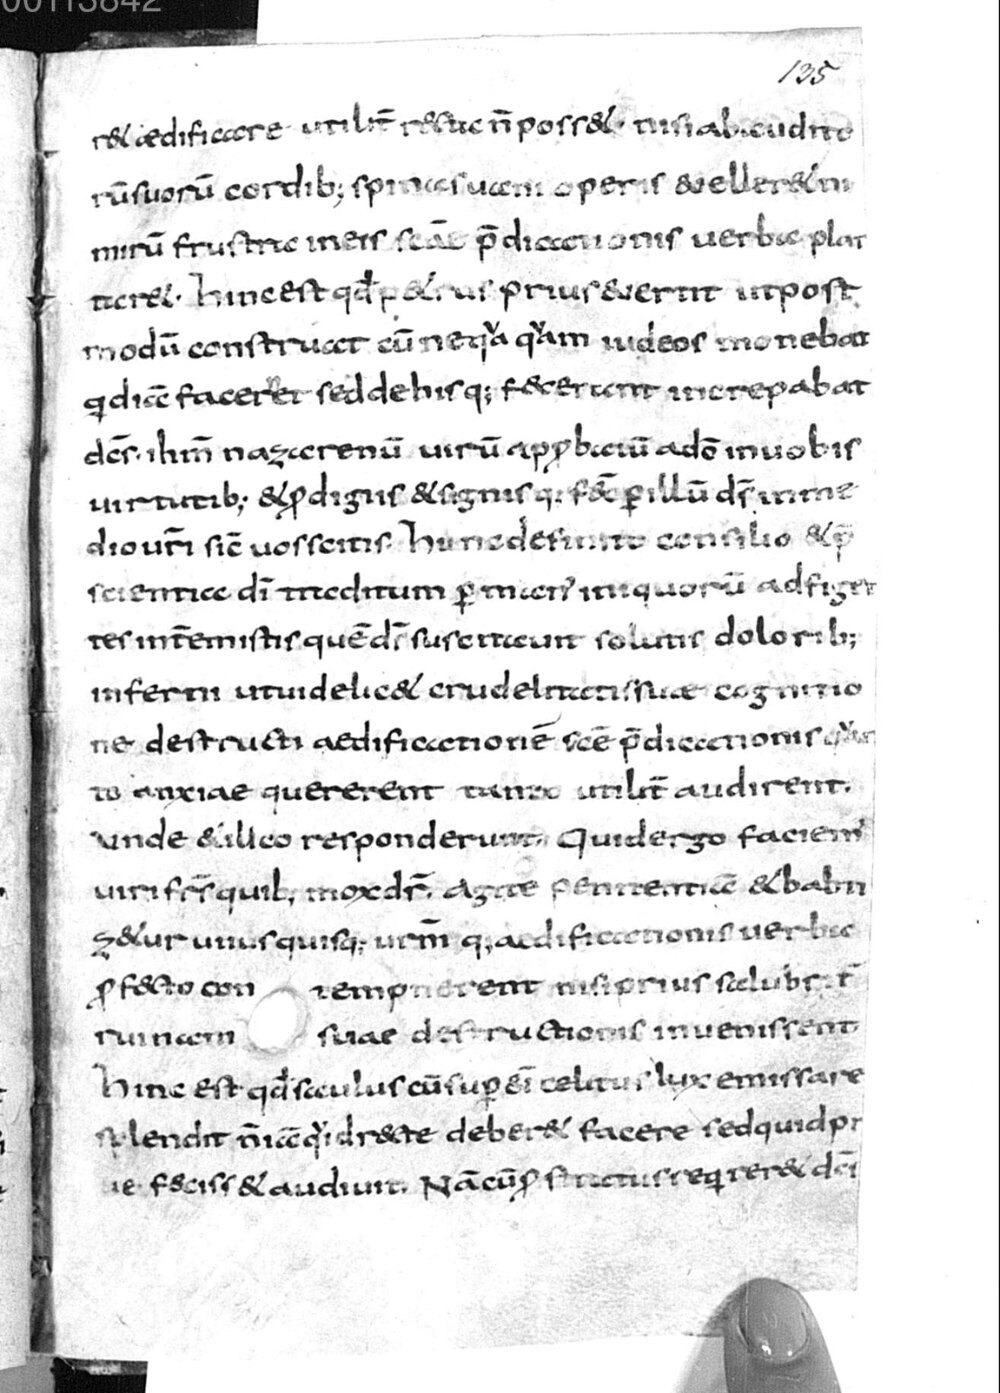 00113842
135
r& aedificare utilit̄ recta n̄ poss&· nisi ab audito
rū suorū cordib; spinas uani operis eueller& ni
mirū frustra in eis scāe p̄dicationis uerba plan
tar&· hinc est qd̄ p&rus prius euertit ut post
modū construat cū nequaquam iudeos monebat
quid iā facerent sed de his q; fecerunt increpabat
dēs· ihm̄ nazarenū uirū approbatū a dō in uobis
uirtutib; & prodigiis & signis q; fēc per illū ds̄ in me
dio uri̅ sic̄ uos scitis hunc definito consilio & p̄
scientia dī traditum per manꝰ iniquorū adfigen
tes int̄emistis quē ds̄ suscitauit solutis dolorib;
inferni ut uidelic& crudelitatis suae cognitio
ne destructi aedificationē scē p̄dicationis quan
to anxiae quererent tanto utilit̄ audirent.
unde & ilico responderunt. Quid ergo faciemꝰ
uiri frs̄ quib; mox dr̄. Agite penitentiā & babti
z&ur unusquisq; urm̄ q; aedificationis uerba
profecto con tempnerent nisi prius salubrit̄
ruinam suae destructionis inuenissent
hinc est qd̄ saulus cū super eī celitus lux emissa re
splendit n̄ iā quid recte deber& facere sed quid pr
ue feciss& audiuit. Nā cū prostratus requirer& dc̄i